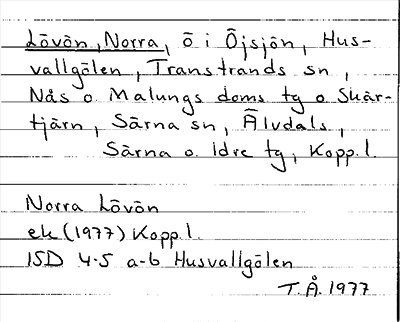 Lövön, Norra, ö i Öjsjön, Hus-
vallgölen, Transtrands sn,
Nås o. Malungs doms tg o Skär-
tjärn, Särna sn, Älvdals,
Särna o. Idre tg, Kopp.l.
Norra Lövön
ek (1977) Kopp.l.
15D 4-5 a-b Husvallgölen
T.Å. 1977